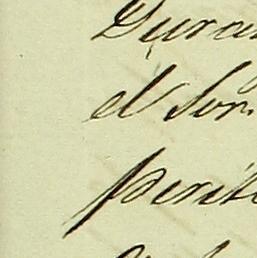 Duran
el Sor.
perit